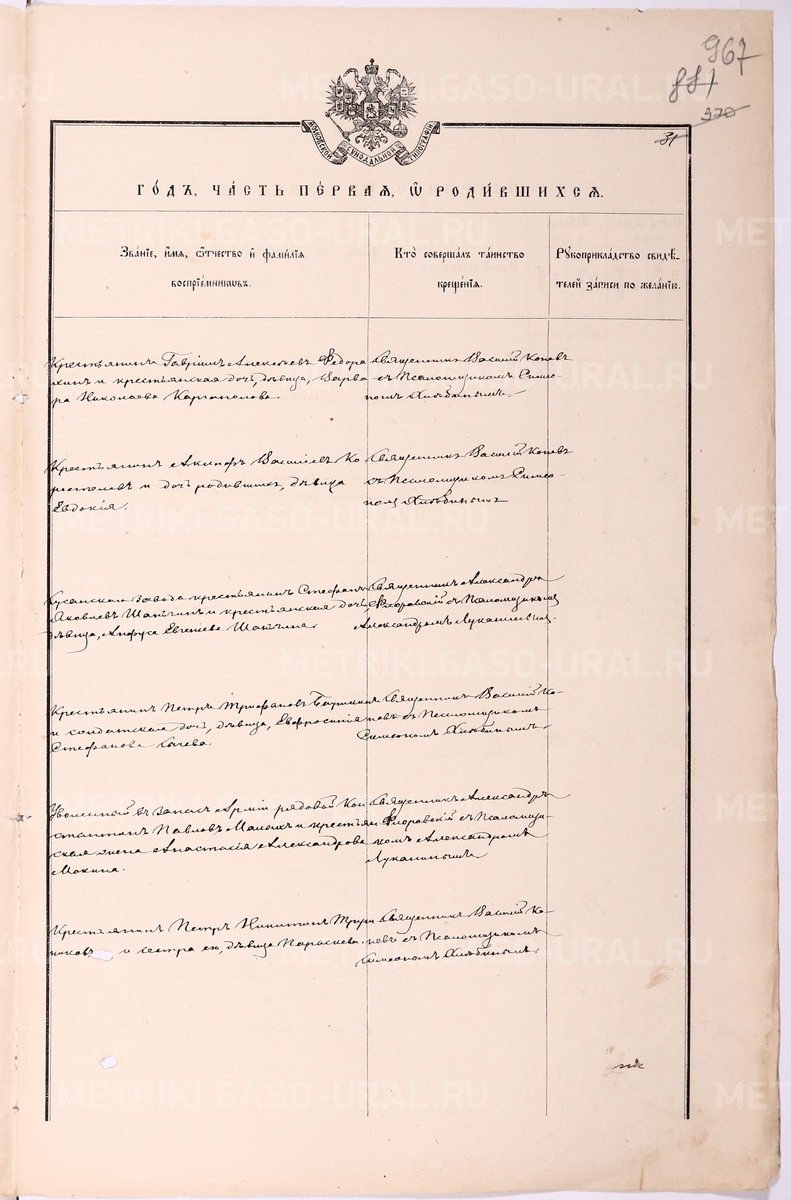 967
881
370
31
МОСКОВСКОЙ СѴНОДАЛЬНОЙ ТИПОГРАФІИ
ГО́ДЪ, ЧА́СТЬ ПЕ́РВАѦ, Ѡ҆ РОДИ́ВШИХСѦ.
Зва́нїе, и҆́мѧ, ѻ҆́тчество и҆ фамил́їѧ
воспрїе́мникѡвъ.
Кто̀ соверша́лъ та́инство
креще́нїѧ.
Рꙋкоприкла́дство свидѣ́-
телей за́писи по жела́нїю.
Крестьянинъ Гавріилъ Алексѣевъ Федора
хинъ и крестьянская дочь, дѣвица, Варва
ра Николаева Каргаполова.
Священникъ Василій Копевъ
съ Псаломщикомъ Симео-
номъ Хлѣбинымъ.
Крестьянинъ Акинфъ Василіевъ Ко
ростелевъ и дочь родившихъ, дѣвица
Евдокія.
Священникъ Василій Копевъ
съ Псаломщикомъ Симео-
номъ Хлѣбинымъ
Кусинскаго завода крестьянинъ Стефанъ
Яковлевъ Шапкинъ и крестьянская дочь
дѣвица, Анфуса Евгеніева
Священникъ Александръ
Флоровскій съ Псаломщикомъ
Александромъ Луканинымъ.
Крестьянинъ Петръ Трифоновъ
и солдатская дочь, дѣвица, Евфросинія
Стефанова
Священникъ Василій Ко-
певъ съ Псаломщикомъ
Симеономъ Хлѣбинымъ.
Уволенный въ запасъ Арміи рядовой Кон
стантинъ Павловъ Малыхъ и крестьян
ская жена Анастасія Александрова
Мокина.
Священникъ Александръ
Флоровскій съ Псаломщи-
комъ Александромъ
Луканинымъ
Крестьянинъ Петръ Никитинъ
и сестра его, дѣвица Параскева.
Священникъ Василій Ко-
певъ съ Псаломщикомъ
Симеономъ Хлѣбинымъ.
METRIKI.GASO-URAL.RU